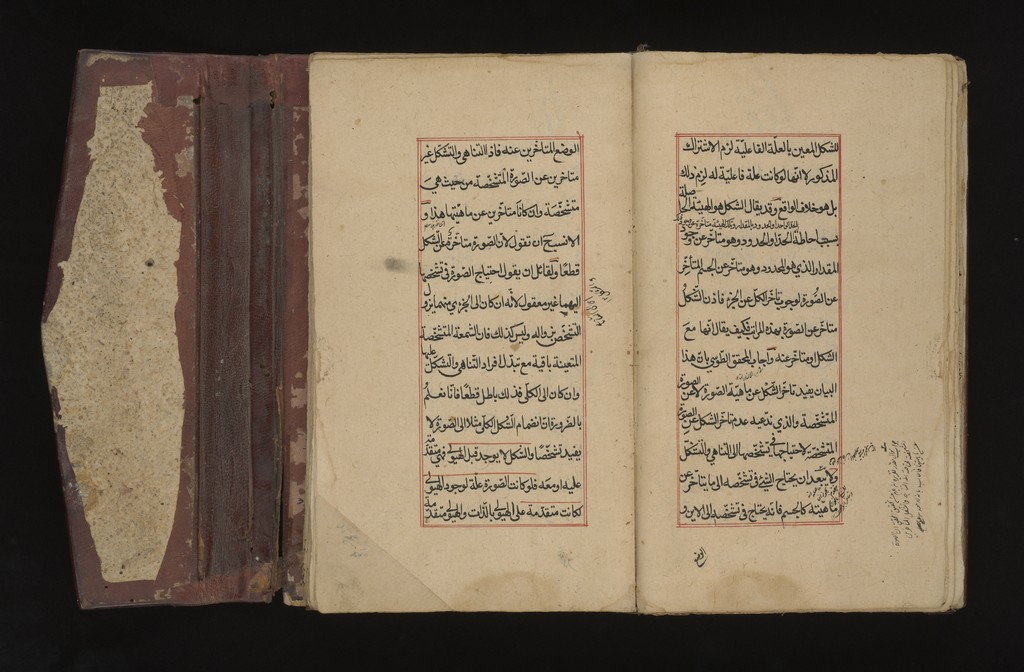 للشكل المعين بالعلة الفاعلية لزم الاشتراك
المذكور لانها لو كانت علة فاعلية له لزم ذلك
بل هو خلاف الواقع وقد يقال الشكل هو الهيئة الحاصلة
بسبب احاطة الحد او الحدود وهو متاخر عن وجود
المقدار الذي هو المحدود وهو متاخر عن الجسم المتاخر
عن الصورة لوجوب تاخر الكل عن الجزء فاذن الشكل
متاخر عن الصورة بهذه المراتب فكيف يقال انها مع
الشكل او متاخرة عنه واجاب المحقق الطوسي بان هذا
البيان يفيد تاخر الشكل عن ماهية الصورة لا عن الصورة
المتشخصة والذي ندعيه عدم تاخر الشكل عن الصورة
المتشخصة لاحتياجها في تشخصها الى التناهي والتشكل
ولا يبعد ان يحتاج الشيء في تشخصه الى ما يتاخر عن
ماهيته كالجسم فانه يحتاج في تشخصه الى الاين و
الوضع
الوضع المتاخرين عنه فاذا التناهي والتشكل غير
متاخرين عن الصورة المتشخصة من حيث هي
متشخصة وان كانا متاخرين عن ماهيتها هذا و
الانسب ان تقول لان الصورة متاخرة عن الشكل
قطعا ولقائل ان يقول احتياج الصورة في تشخصها
اليهما غير معقول لانه ان كان الى الجزئي منهما يزول
التشخص بزواله وليس كذلك فان الشمعة المتشخصة
المتعينة باقية مع تبدل افراد التناهي والتشكل عليها
وان كان الى الكلي فذلك باطل قطعا فانا نعلم
بالضرورة ان انضمام الشكل الكلي مثلا الى الصورة لا
يفيد تشخصا والشكل لا يوجد قبل الهيولى فهي متقدمة
عليه او معه فلو كانت الصورة علة لوجود الهيولى
لكانت متقدمة على الهيولى بالذات والهيولى متقدمة